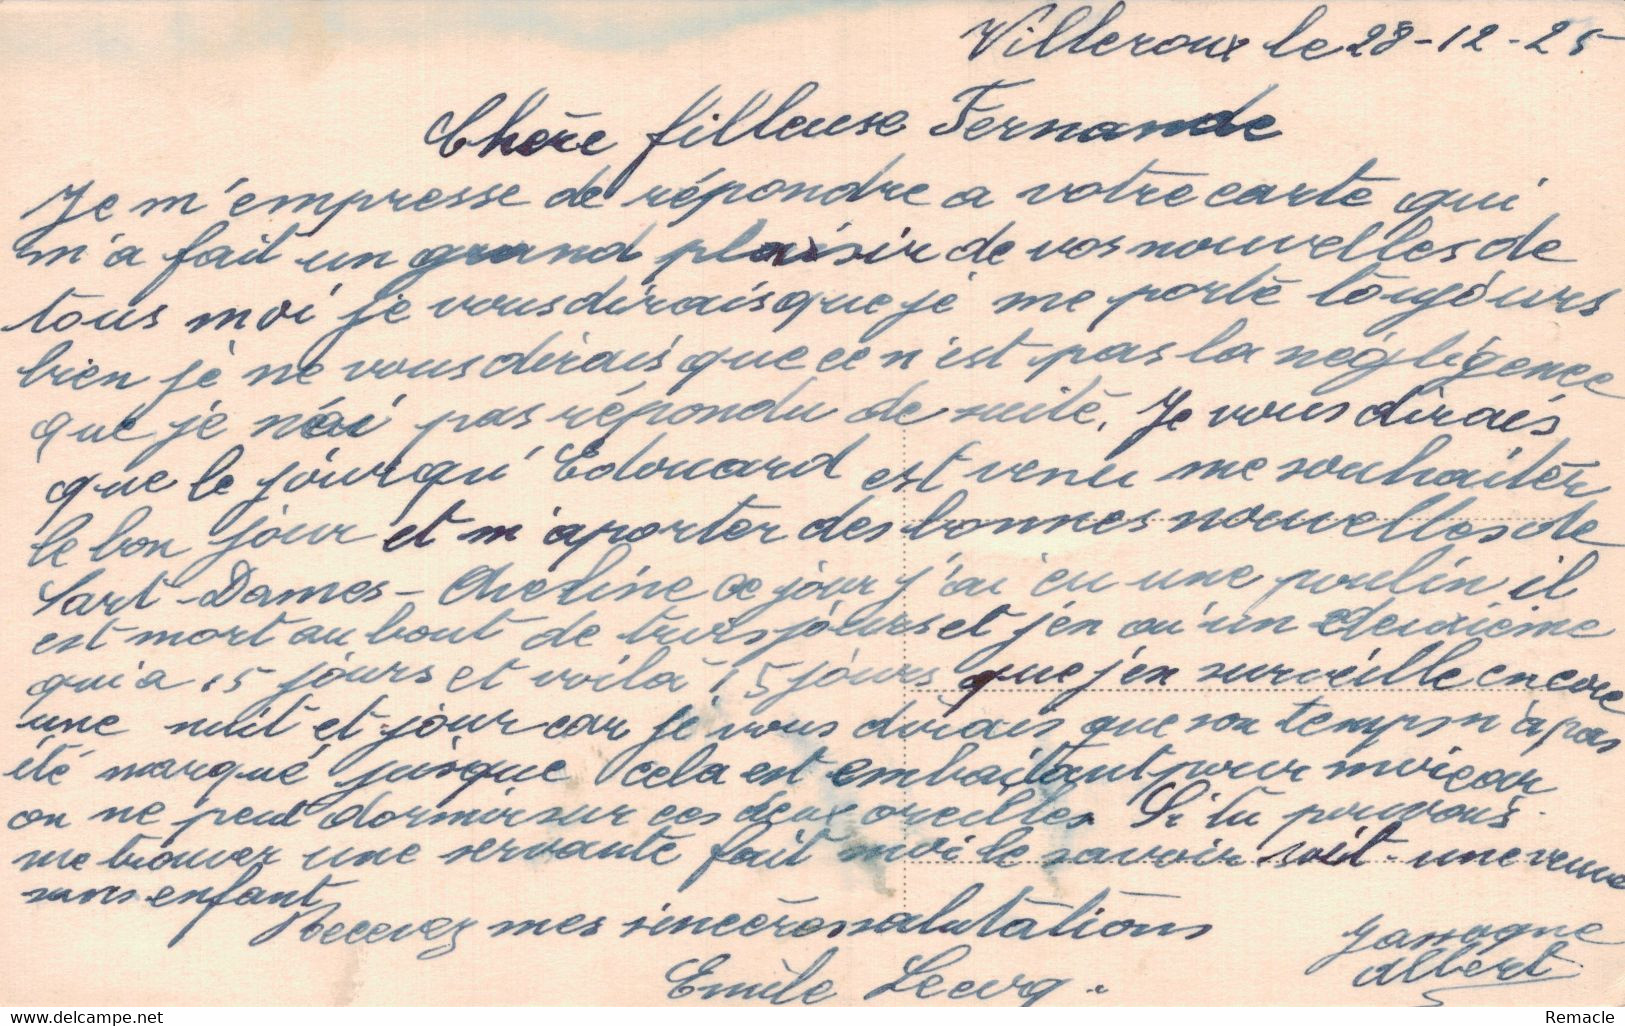 Villeroux le 28-12-25
Chère filleuse Fernande
Je m'empresse de répondre a votre carte qui
m'a fait un grand plaisir de vos nouvelles de
tous moi je vous dirais que je me porte toujours
bien je ne vous dirais que ce n'est pas la négligence
que je n'ai pas répondu de suite. Je vous dirais
que le jour qu'Edouard est venu me souhaiter
le bon jour et m'aporter des bonnes nouvelles de
Sart-Dames- ce jour j'ai eu une poulin il
est mort au bout de trois jours et j'en ai un deuxième
qui a 15 jours et voilà 15 jours que j'en surveille encore
une nuit et jour car je vous dirais que son temps n'a pas
été marqué jusque cela est embaitant pour moi car
on ne peut dormir sur ces deux oreilles. Si tu pouvais
me trouver une servante fait moi le savoir soit une veuve
sans enfant
Recevez mes sincères salutations
Jassogne
Albert
Emile Lecurq.
www.delcampe.net
Remacle